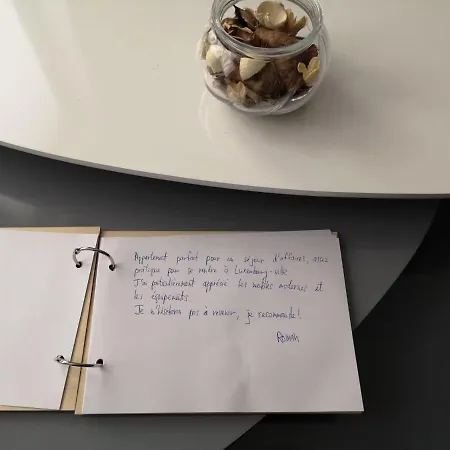 Appartement parfait pour un séjour d'affaires, assez
pratique pour se rendre à Luxembourg-ville
J'ai particulièrement apprécié les meubles modernes et
les équipements.
Je n'hésiterai pas à revenir, je recommande!